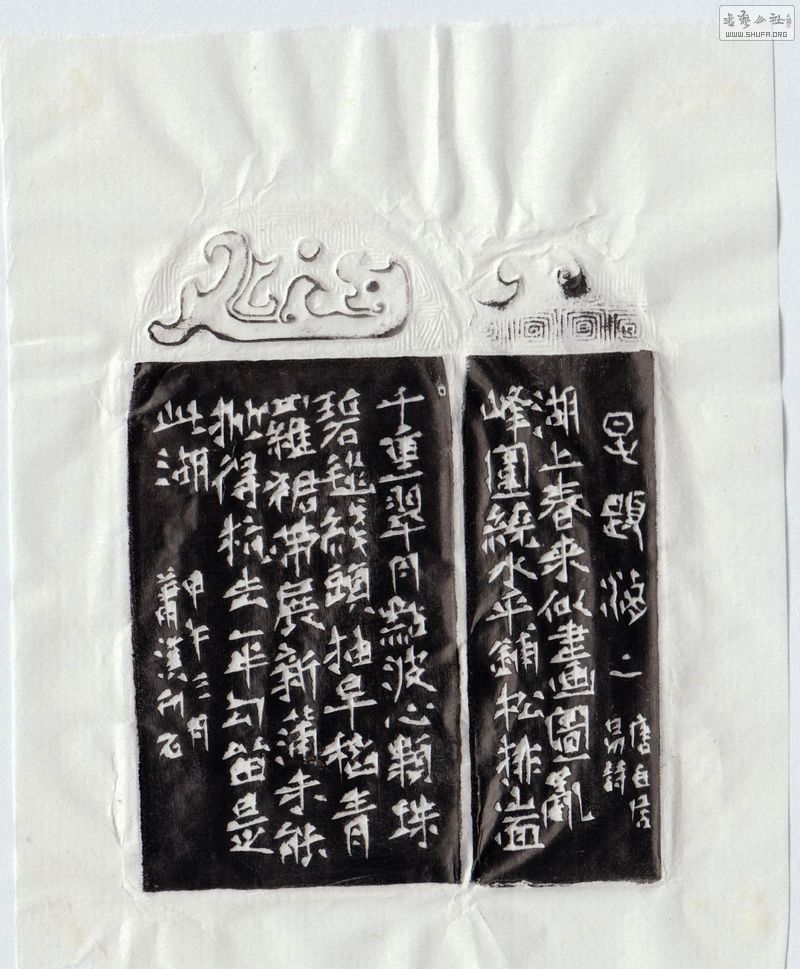 書藝公社
WWW.SHUFA.ORG
題湖上
唐白居
易詩
湖上春来似畫圖亂
峰圍繞水平鋪松排山面
千重翠月點波心顆珠
碧毯綫頭抽早稻青
羅裙帶展新蒲未能
拋得杭去一半勾留是
此湖
甲午三月
蕭漢刊石